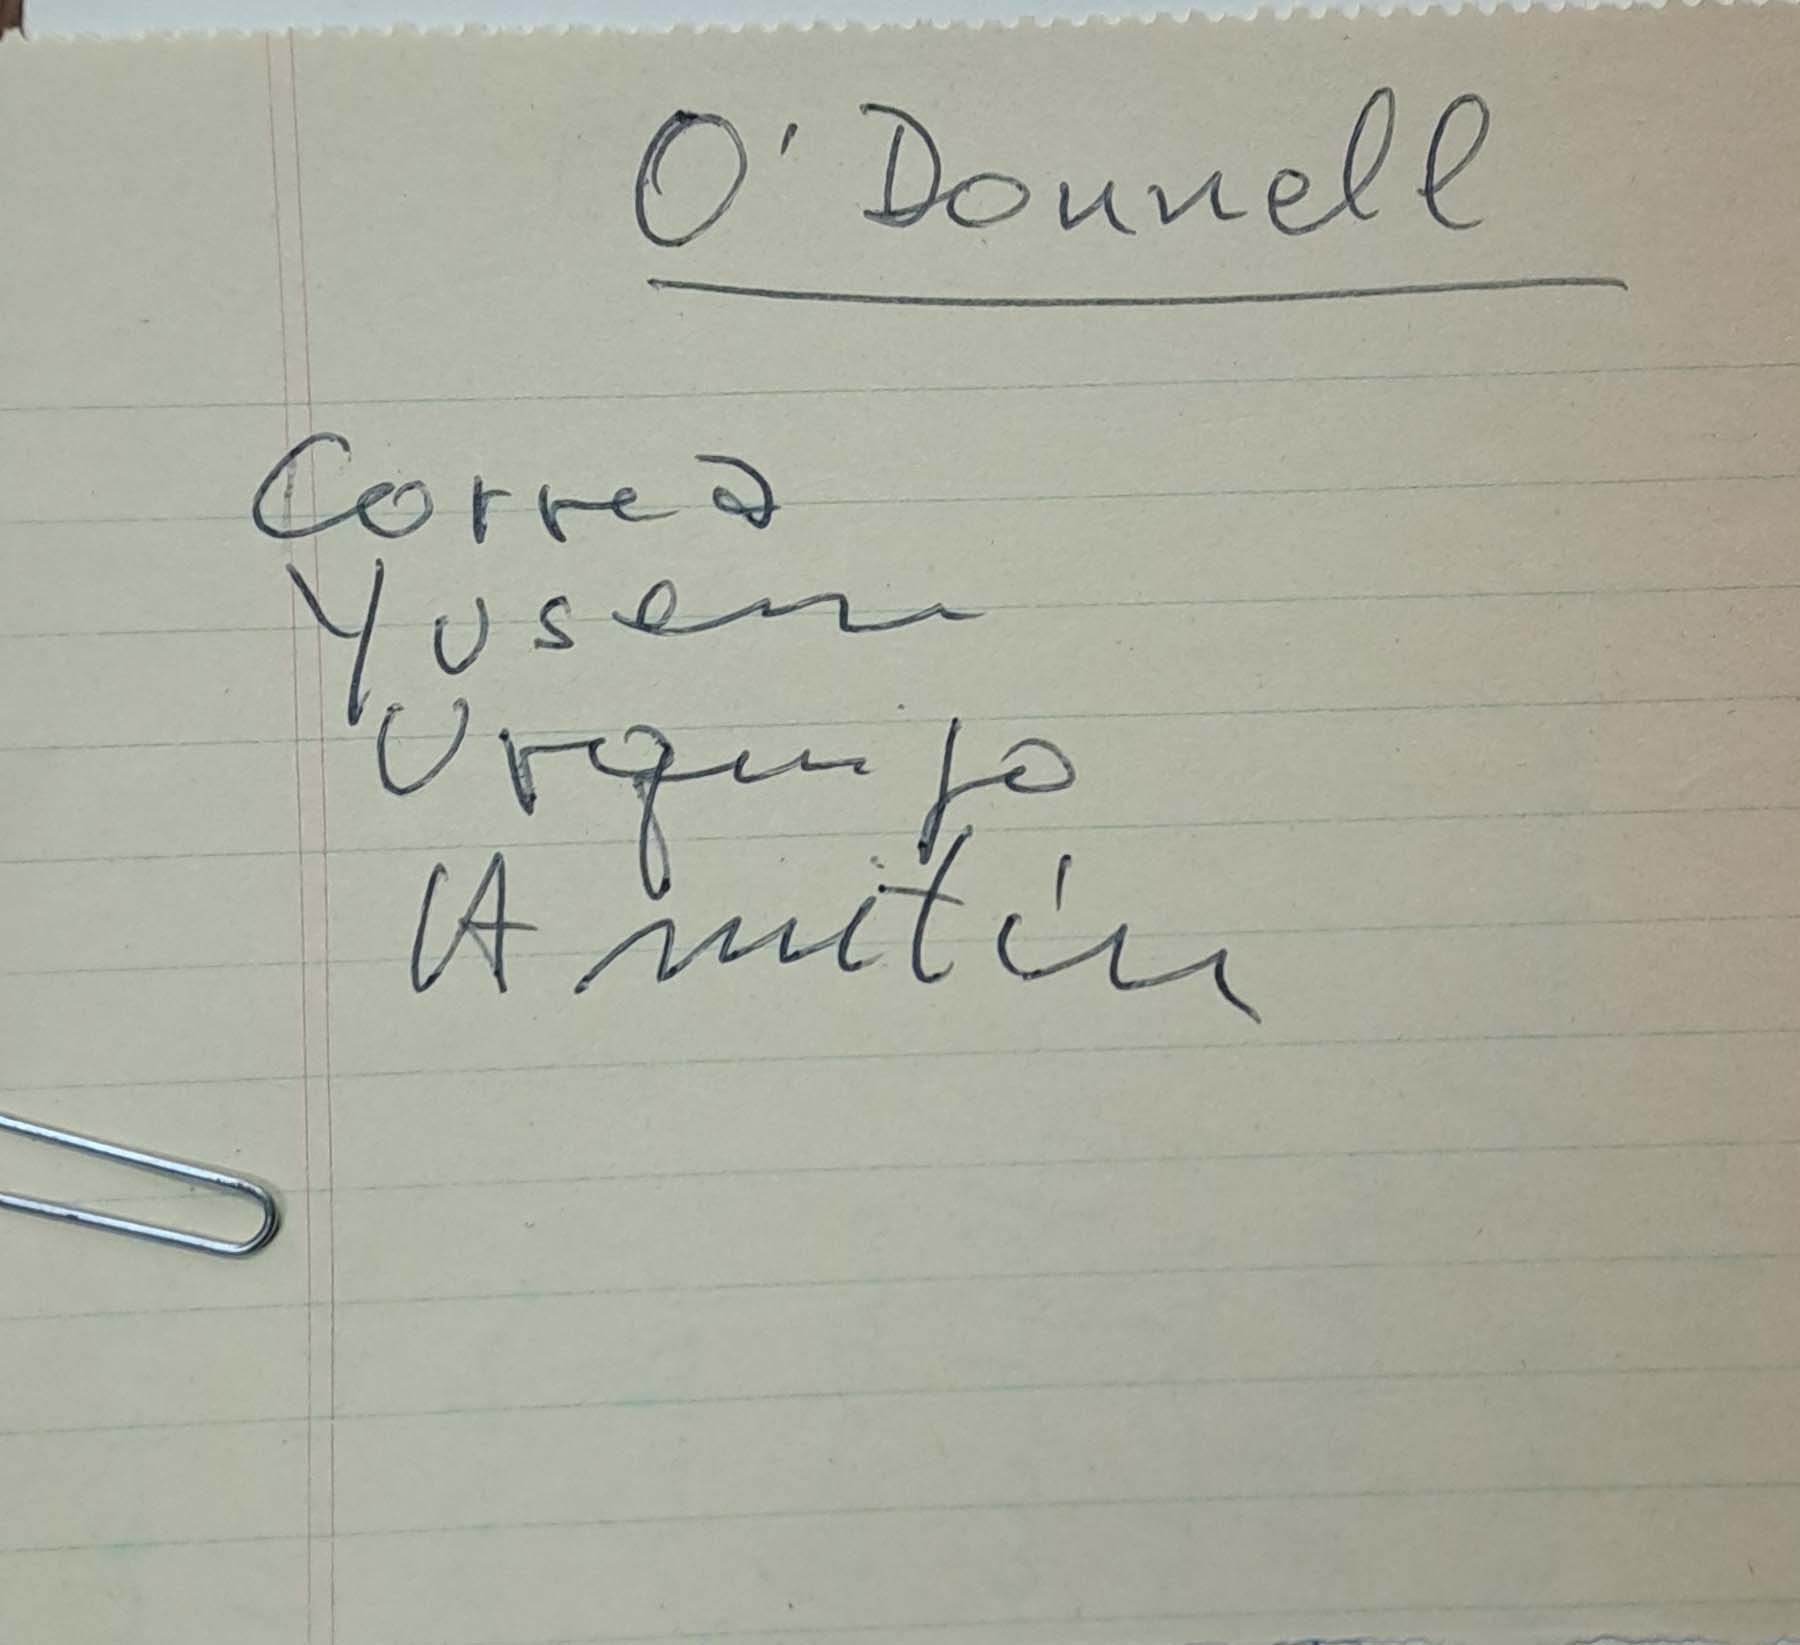 O'Donnell
Correa
Yusem
Urquijo
Amitín